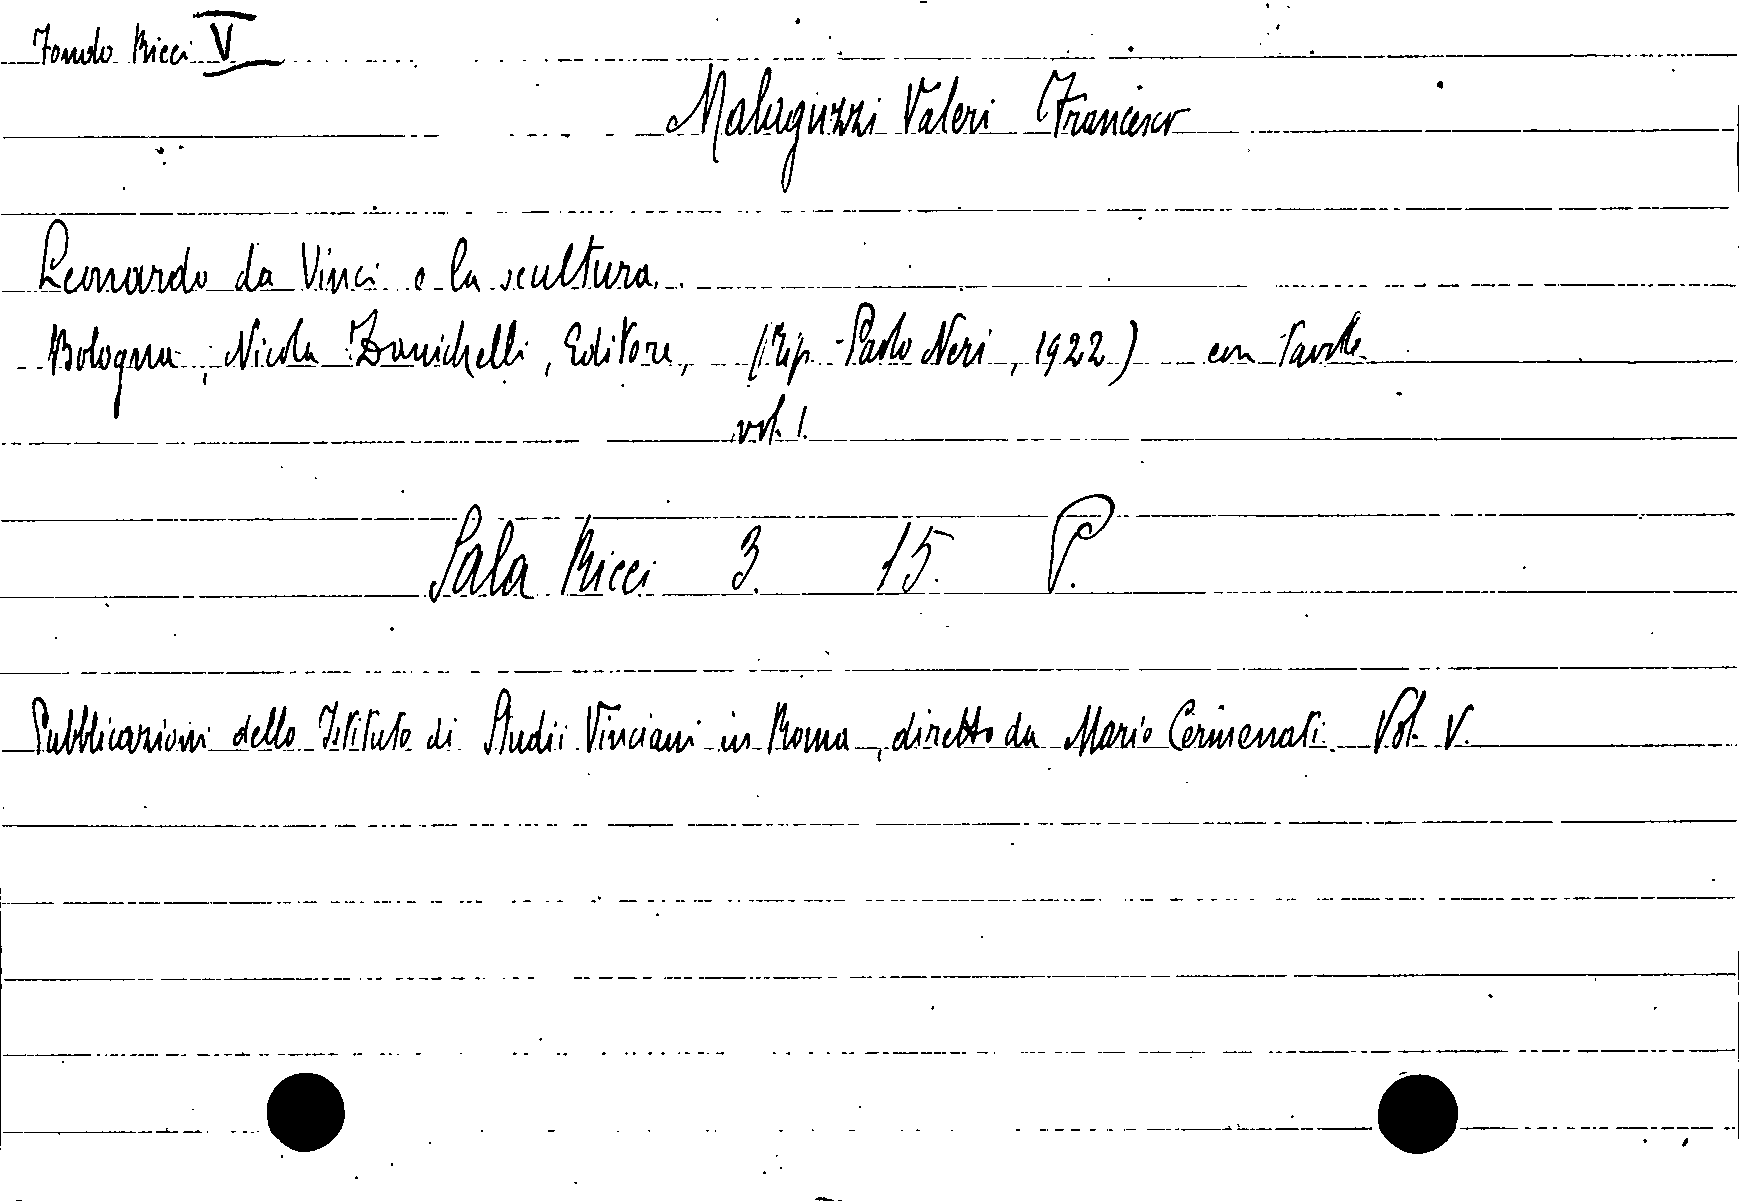 Fondo Ricci V
Malaguzzi Valeri Francesco
Leonardo da Vinci e la scultura.
Bologna, Nicola Zanichelli, Editore, (Tip. Paolo Neri, 1922) con tavole
vol. 1.
Sala Ricci 3. 15. P.
Pubblicazioni dello Istituto di Studii Vinciani in Roma, diretto da Mario Cermenati. Vol. V.